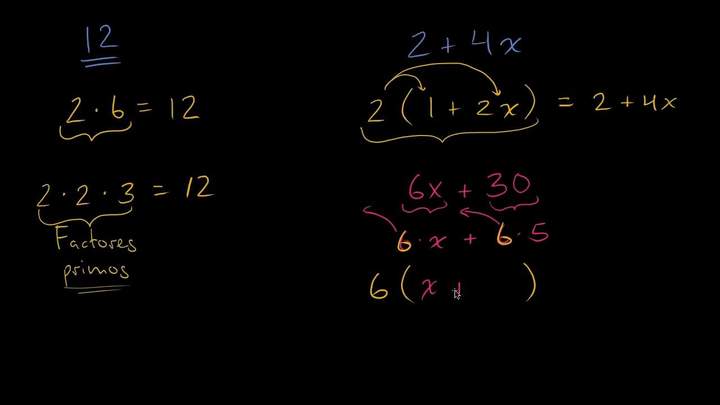 12
2 · 6 = 12
2 · 2 · 3 = 12
Factores
primos
2 + 4x
2 ( 1 + 2x ) = 2 + 4x
6x + 30
6 · x + 6 · 5
6 ( x + )